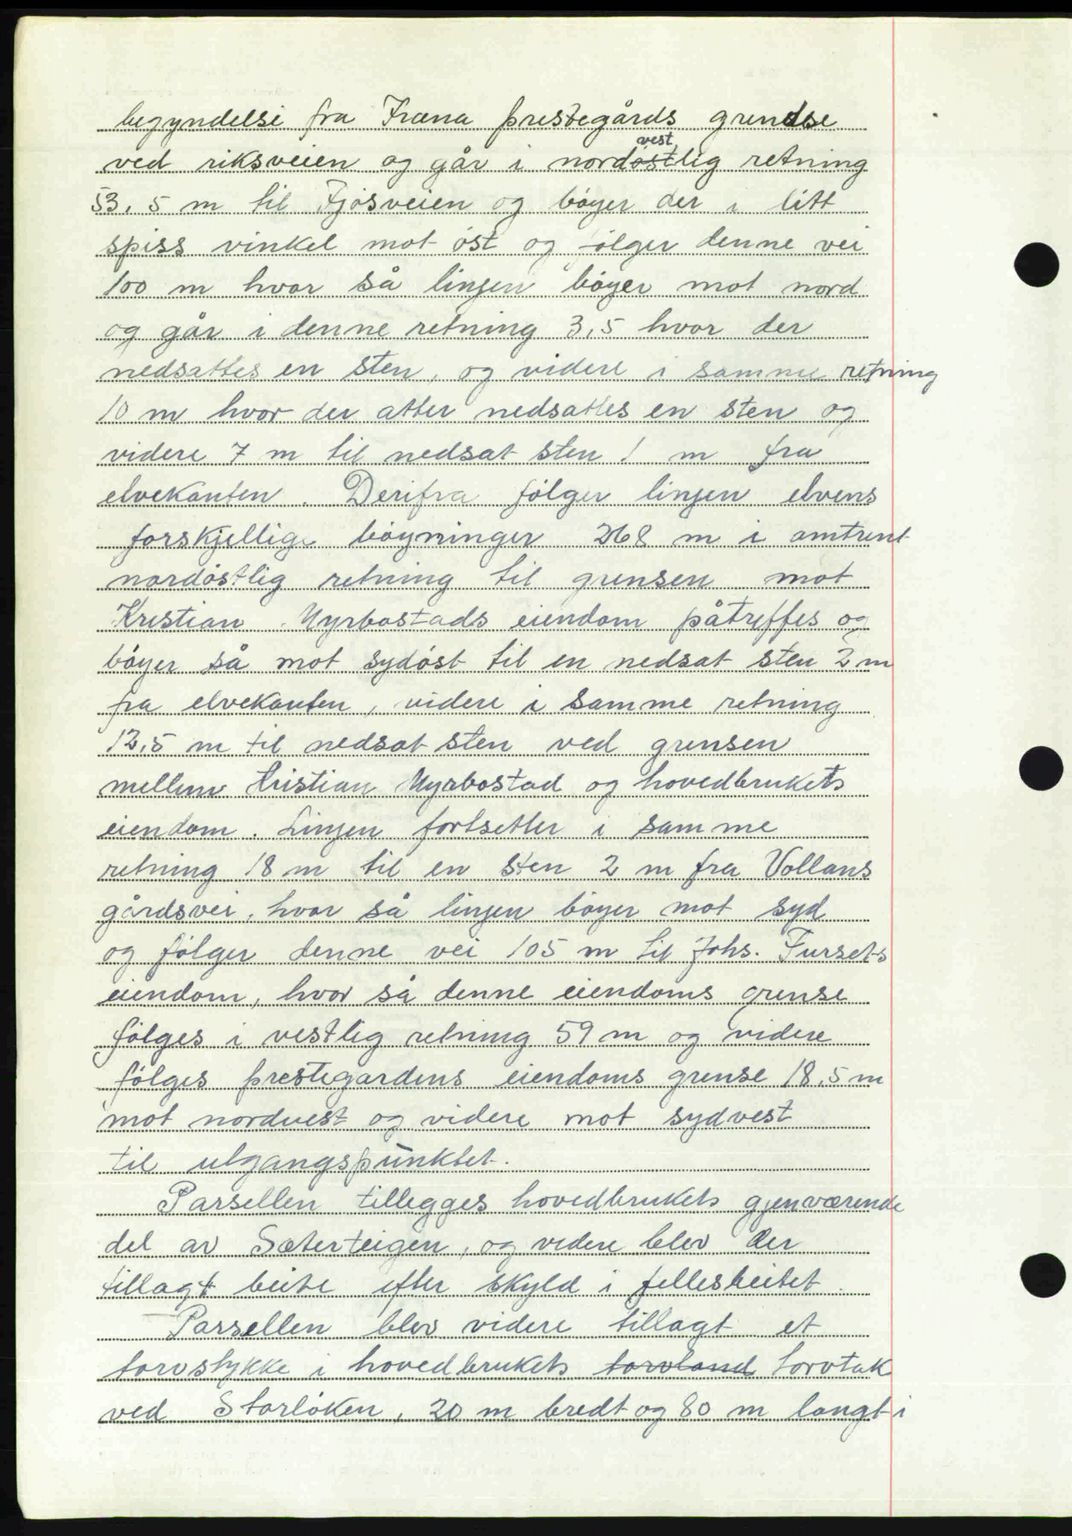 begyndelse fra Fræna prestegårds grendse
ved riksveien og går i nordøstvestlig retning
53,5 m til Fjøsveien og bøyer der i litt
spiss vinkel mot øst og følger denne vei
100 m hvor så linjen bøyer mot nord
og går i denne retning 3,5 hvor der
nedsattes en sten, og videre i samme retning
10 m hvor der atter nedsattes en sten og
videre 7 m til nedsat sten 1 m fra
elvekanten. Derifra følger linjen elvens
forskjellige bøyninger 268 m i omtrent
nordøstlig retning til grensen mot
Kristian Myrbostads eiendom påtreffes og
bøyer så mot sydøst til en nedsat sten 2 m
fra elvekanten, videre i samme retning
12,5 m til nedsat sten ved grensen
mellem Kristian Myrbostad og hovedbrukets
eiendom. Linjen fortsetter i samme
retning 18 m til en sten 2 m fra Vollans
gårdsvei, hvor så linjen bøyer mot syd
og følger denne vei 105 m til Johs. Fursets
eiendom, hvor så denne eiendoms grense
følges i vestlig retning 59 m og videre
følges prestegardens eiendoms grense 18,5 m
mot nordvest og videre mot sydvest
til utgangspunktet.
Parsellen tillegges hovedbrukets gjenværende
del av Sæterteigen, og videre blev der
tillagt beite efter skyld i fellesbeitet.
Parsellen blev videre tillagt et
torvstykke i hovedbrukets torvland torvtak
ved Storløken, 20 m bredt og 80 m langt i